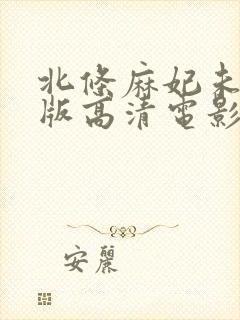 北條麻妃未
版高清電影
安麗